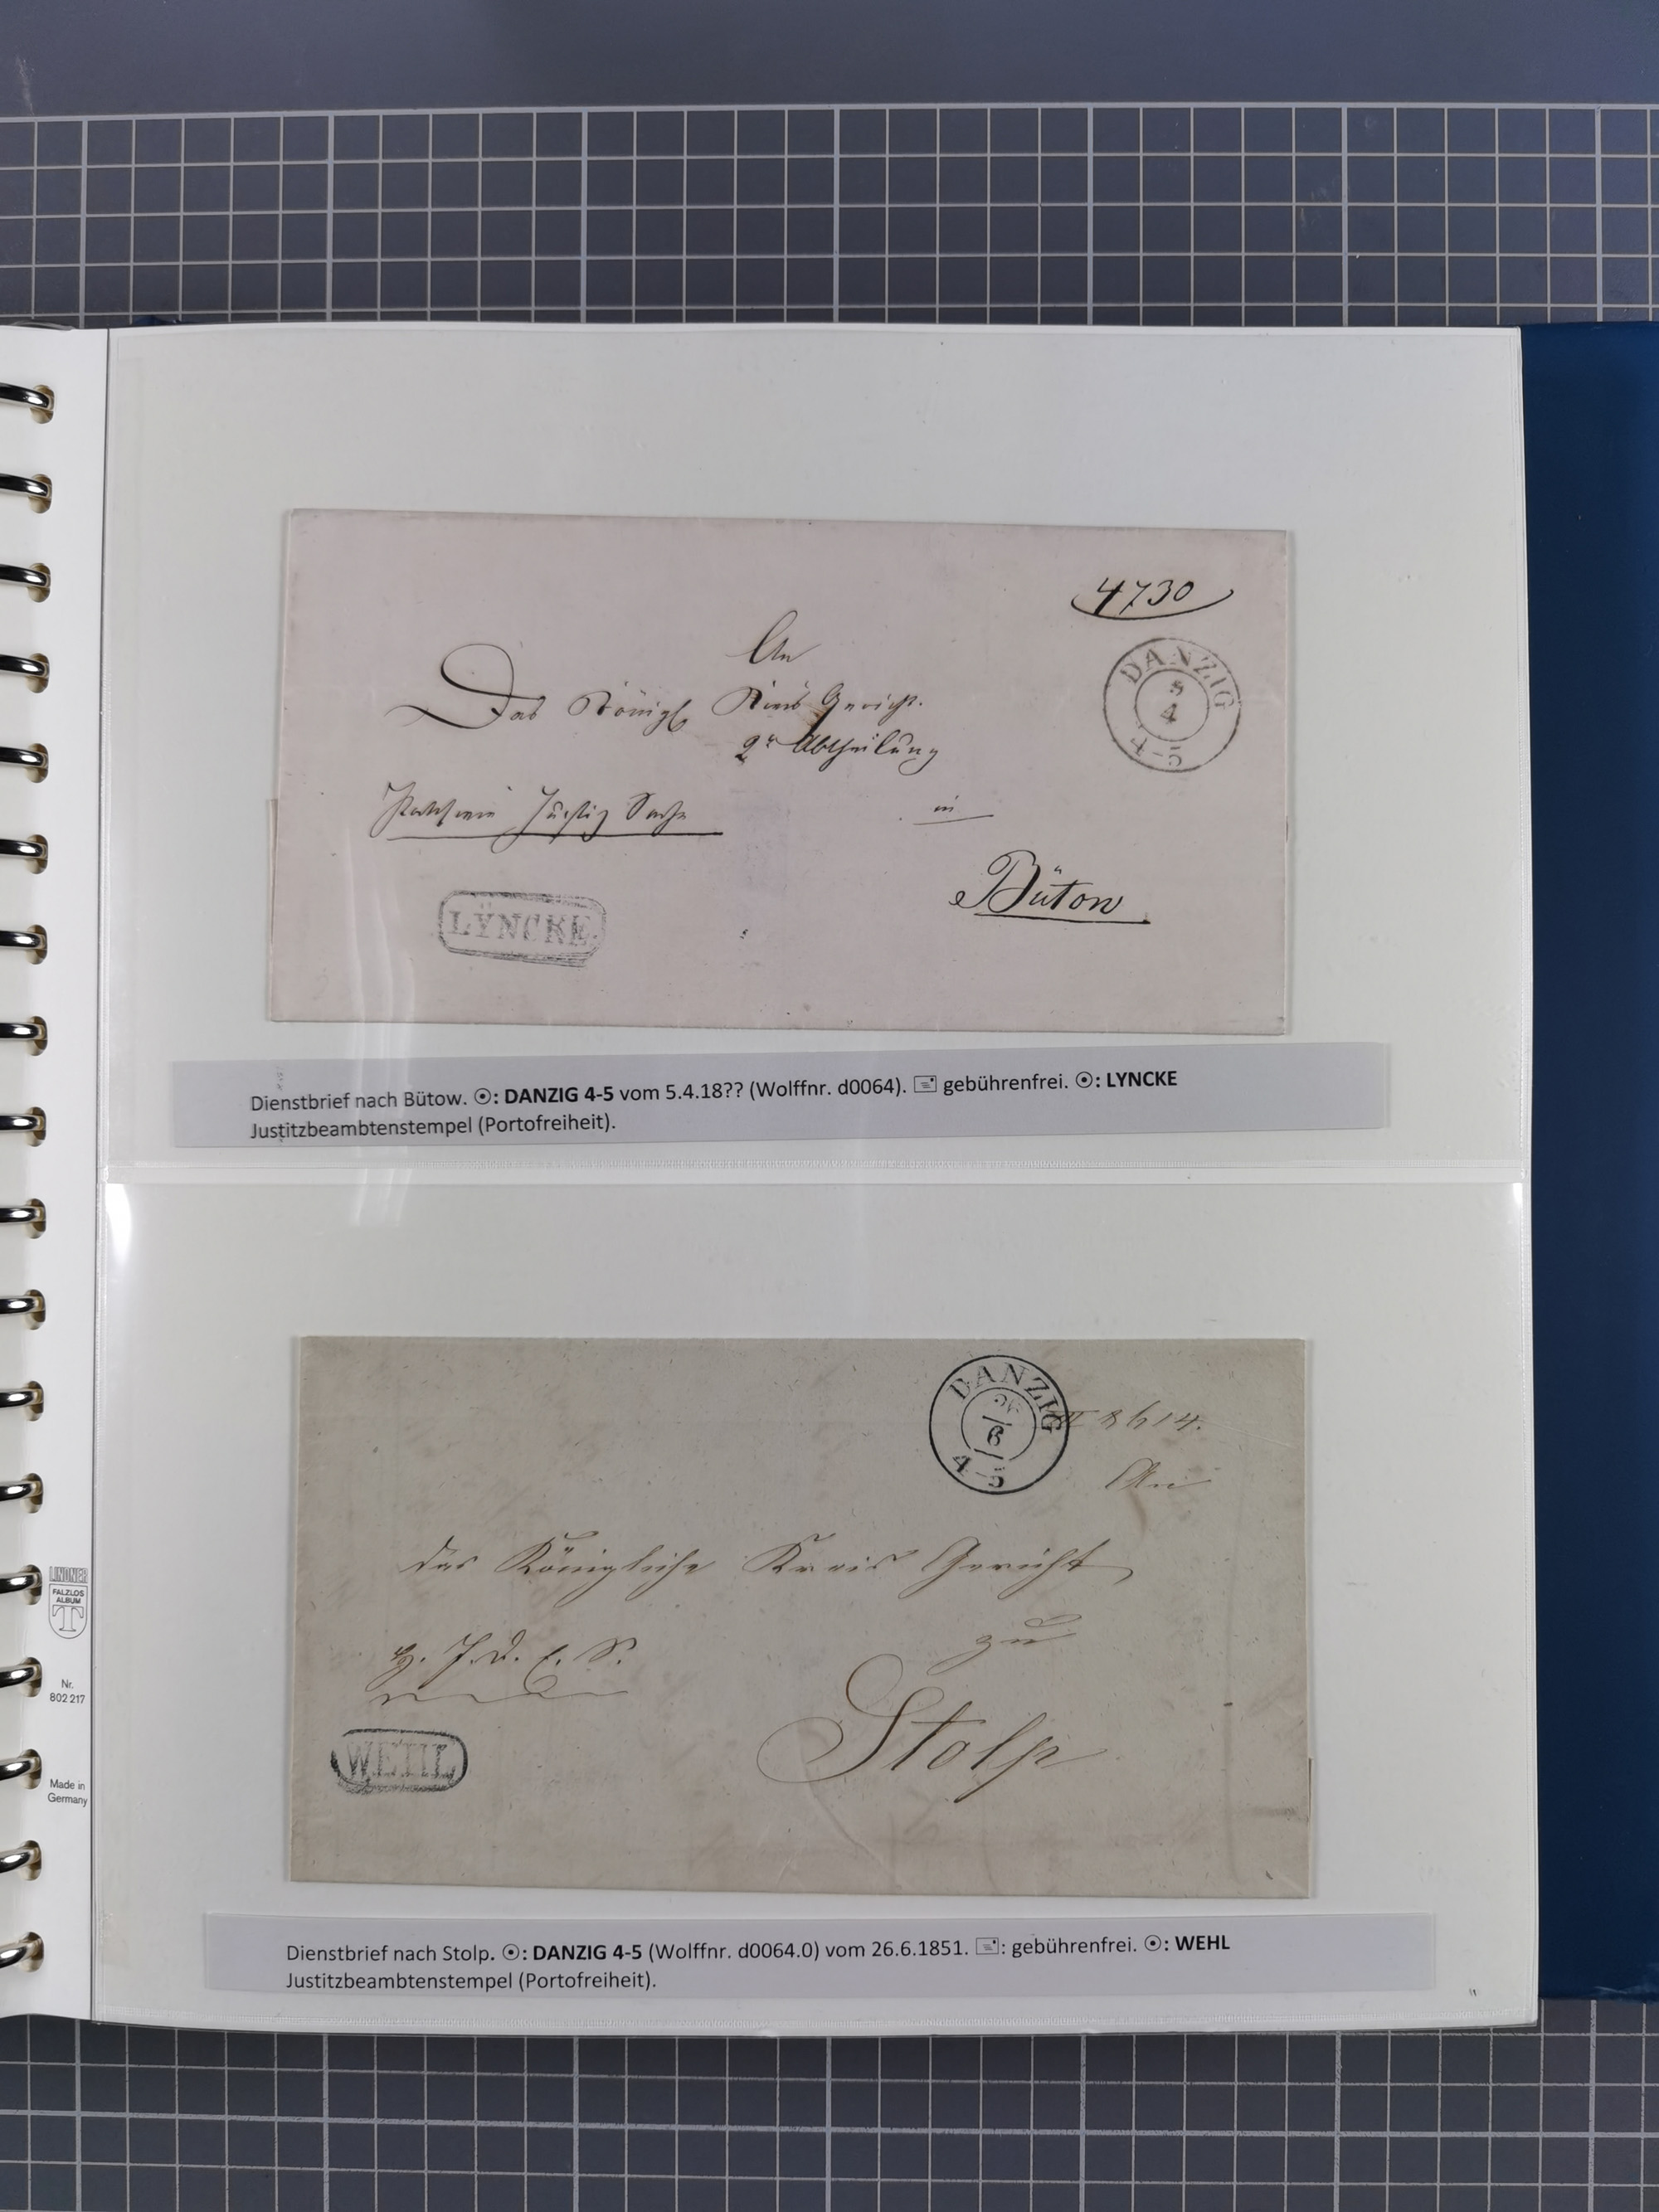 4730
An
Das Königl Kreis Gericht.
2te Abtheilung
Justiz Sache
in
Bütow
DANZIG
5
4
4-5
LŸNCKE
Dienstbrief nach Bütow. ☉: DANZIG 4-5 vom 5.4.18?? (Wolffnr. d0064). 🖃 gebührenfrei. ☉: LYNCKE
Justitzbeambtenstempel (Portofreiheit).
DANZIG
26
6
4-5
An
das Königliche Kreis Gericht
zu
Stolp
WEHL
Dienstbrief nach Stolp. ☉: DANZIG 4-5 (Wolffnr. d0064.0) vom 26.6.1851. 🖃: gebührenfrei. ☉: WEHL
Justitzbeambtenstempel (Portofreiheit).
LINDNER
FALZLOS
ALBUM
T
Nr.
802 217
Made in
Germany